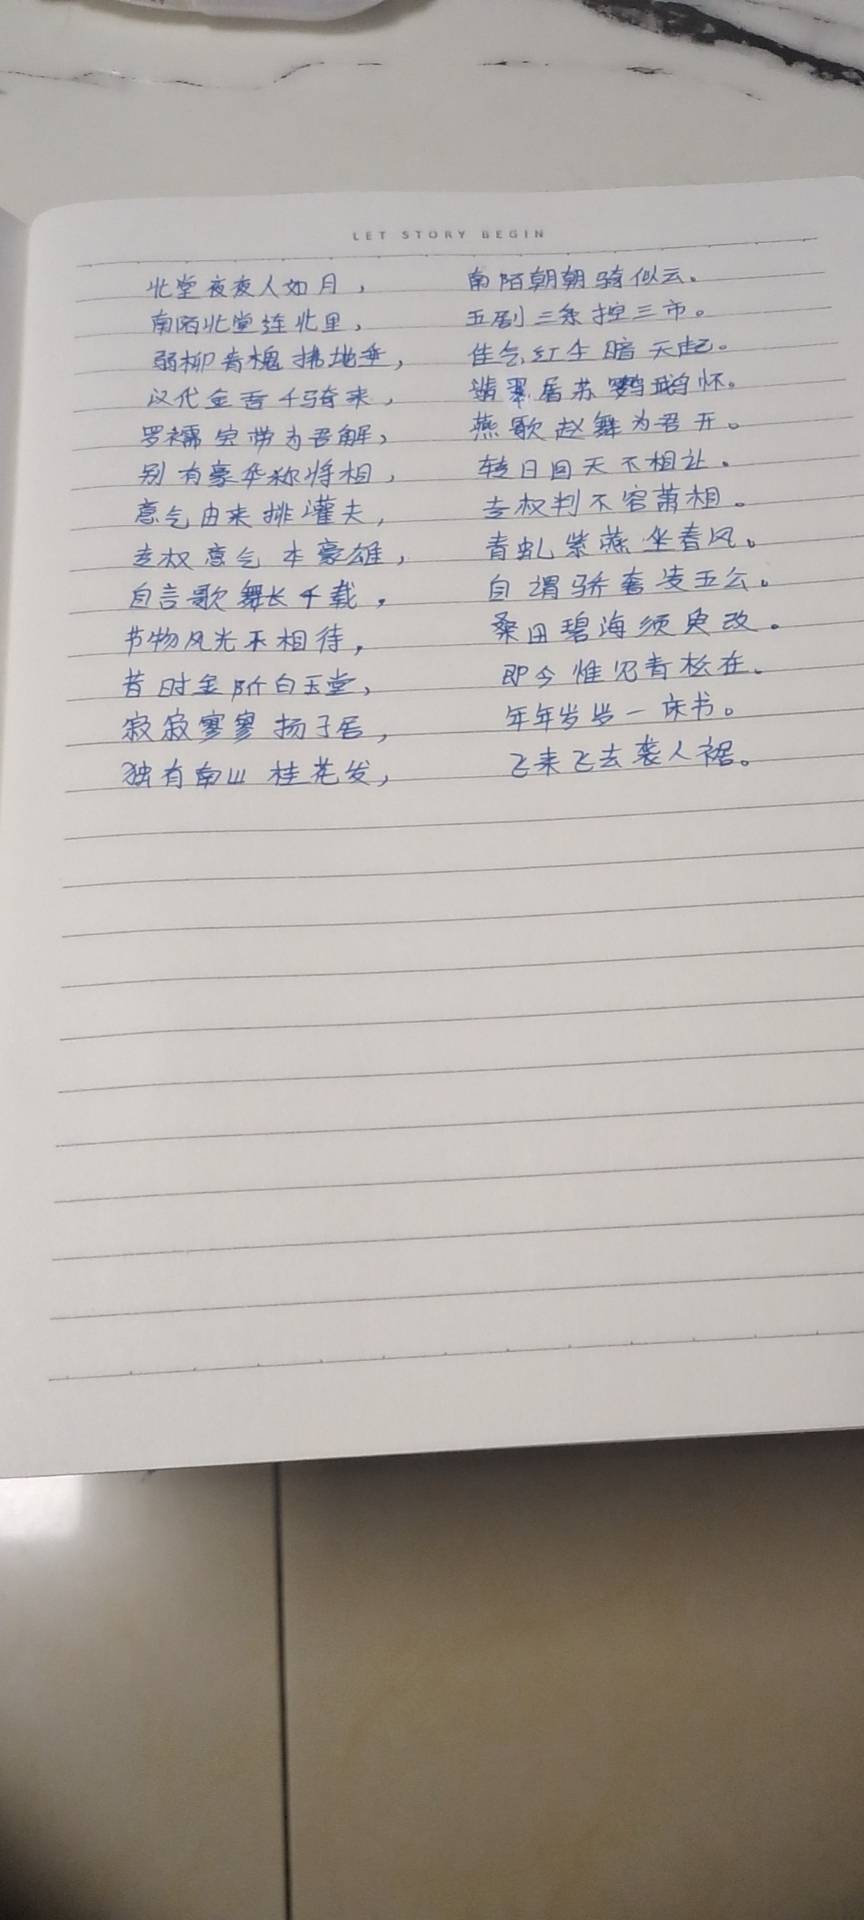 LET STORY BEGIN
北堂夜夜人如月， 南陌朝朝骑似云。
南陌北堂连北里， 五剧三条控三市。
弱柳青槐拂地垂， 佳气红尘暗天起。
汉代金吾千骑来， 翡翠屠苏鹦鹉怀。
罗襦宝带为君解， 燕歌赵舞为君开。
别有豪华称将相， 转日回天不相让。
意气由来排灌夫， 专权判不容萧相。
专权意气本豪雄， 青虬紫燕坐春风。
自言歌舞长千载， 自谓骄奢凌五公。
节物风光不相待， 桑田碧海须臾改。
昔时金阶白玉堂， 即今惟见青松在。
寂寂寥寥扬子居， 年年岁岁一床书。
独有南山桂花发， 飞来飞去袭人裾。